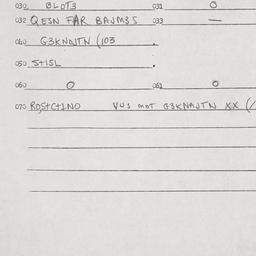 030 BLOT3 031 O
032 QE3N FAR BAUM3S 033 —
040 G3KNOJTN (103
050 S+ISL
060 O 061 O
070 ROS+C+1NO VU3 MOT G3KNAUTN XX (/